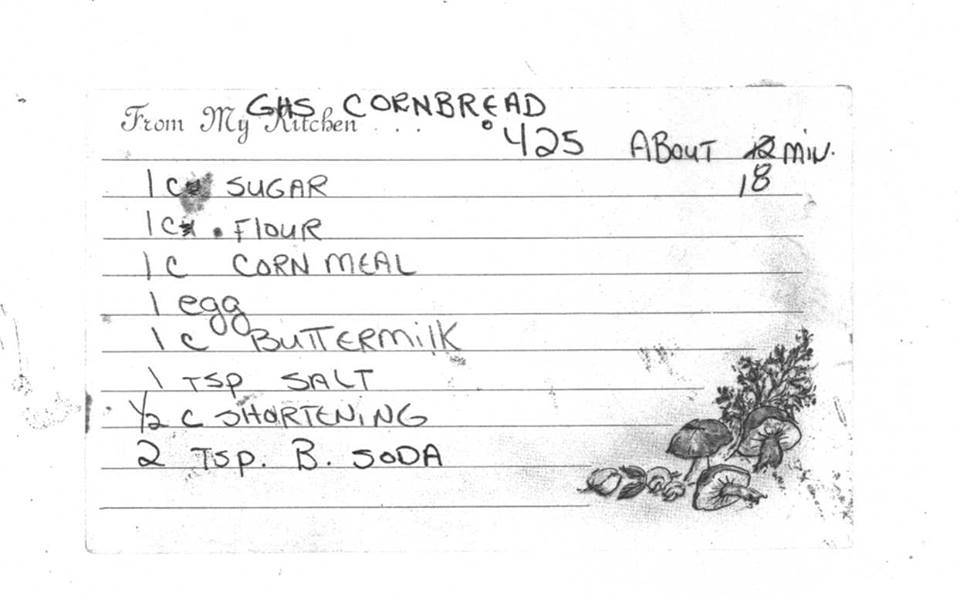 GHS CORNBREAD
From My Kitchen . . .
°425 ABOUT 12 MIN.
18
1 C SUGAR
1 C FlOUR
1 C CORN MEAL
1 egg
1 C BuTTERMilK
1 TSP SALT
1/2 C SHORTENiNG
2 TSP. B. SODA